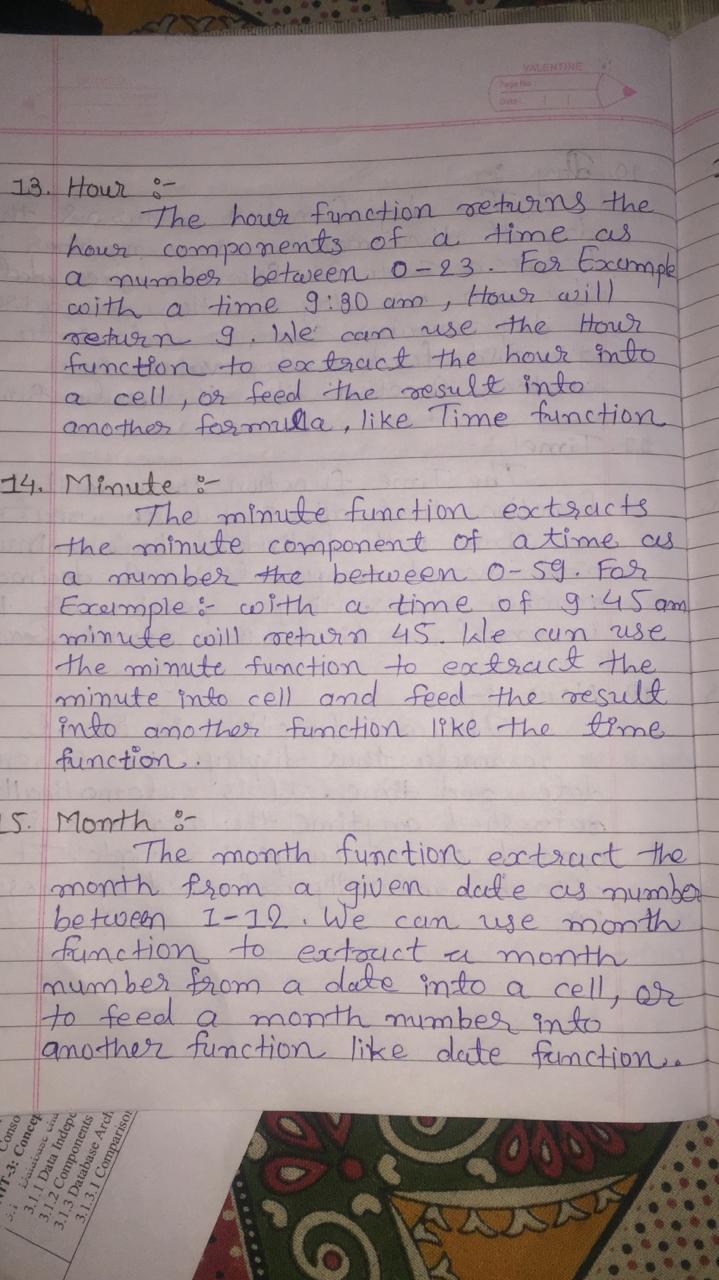 VALENTINE
Page No.
Date
13. Hour :-
The hour function returns the
hour components of a time as
a number between 0-23. For Example
with a time 9:30 am, Hour will
return 9. We can use the Hour
function to extract the hour into
a cell, or feed the result into
another formula, like Time function
14. Minute :-
The minute function extracts
the minute component of a time as
a number the between 0-59. For
Example :- with a time of 9:45 am
minute will return 45. We can use
the minute function to extract the
minute into cell and feed the result
into another function like the time
function.
5. Month :-
The month function extract the
month from a given date as number
between 1-12. We can use month
function to extract a month
number from a date into a cell, or
to feed a month number into
another function like date function.
Conso
IT-3: Concep
3.1.1 Data Indepe
3.1.2 Components
3.1.3 Database Arch
3.1.3.1 Comparison